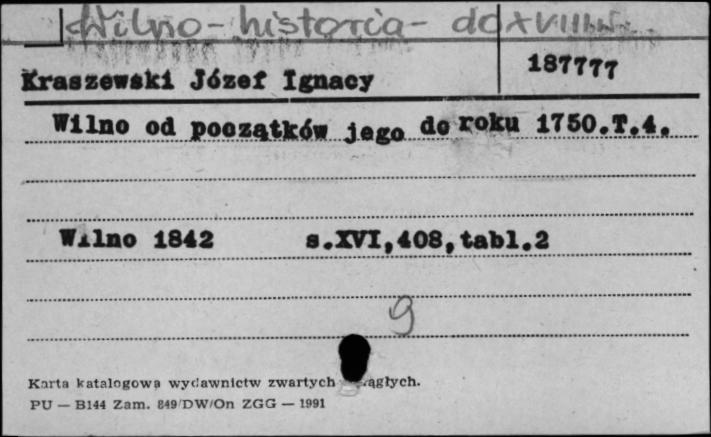 Wilno - historia - do XVIII w.
187777
Kraszewski Józef Ignacy
Wilno od początków jego do roku 1750.T.4.
Wilno 1842 s.XVI,408,tabl.2
9
Karta katalogowa wydawnictw zwartych
PU — B144 Zam. 849/DW/On ZGG — 1991